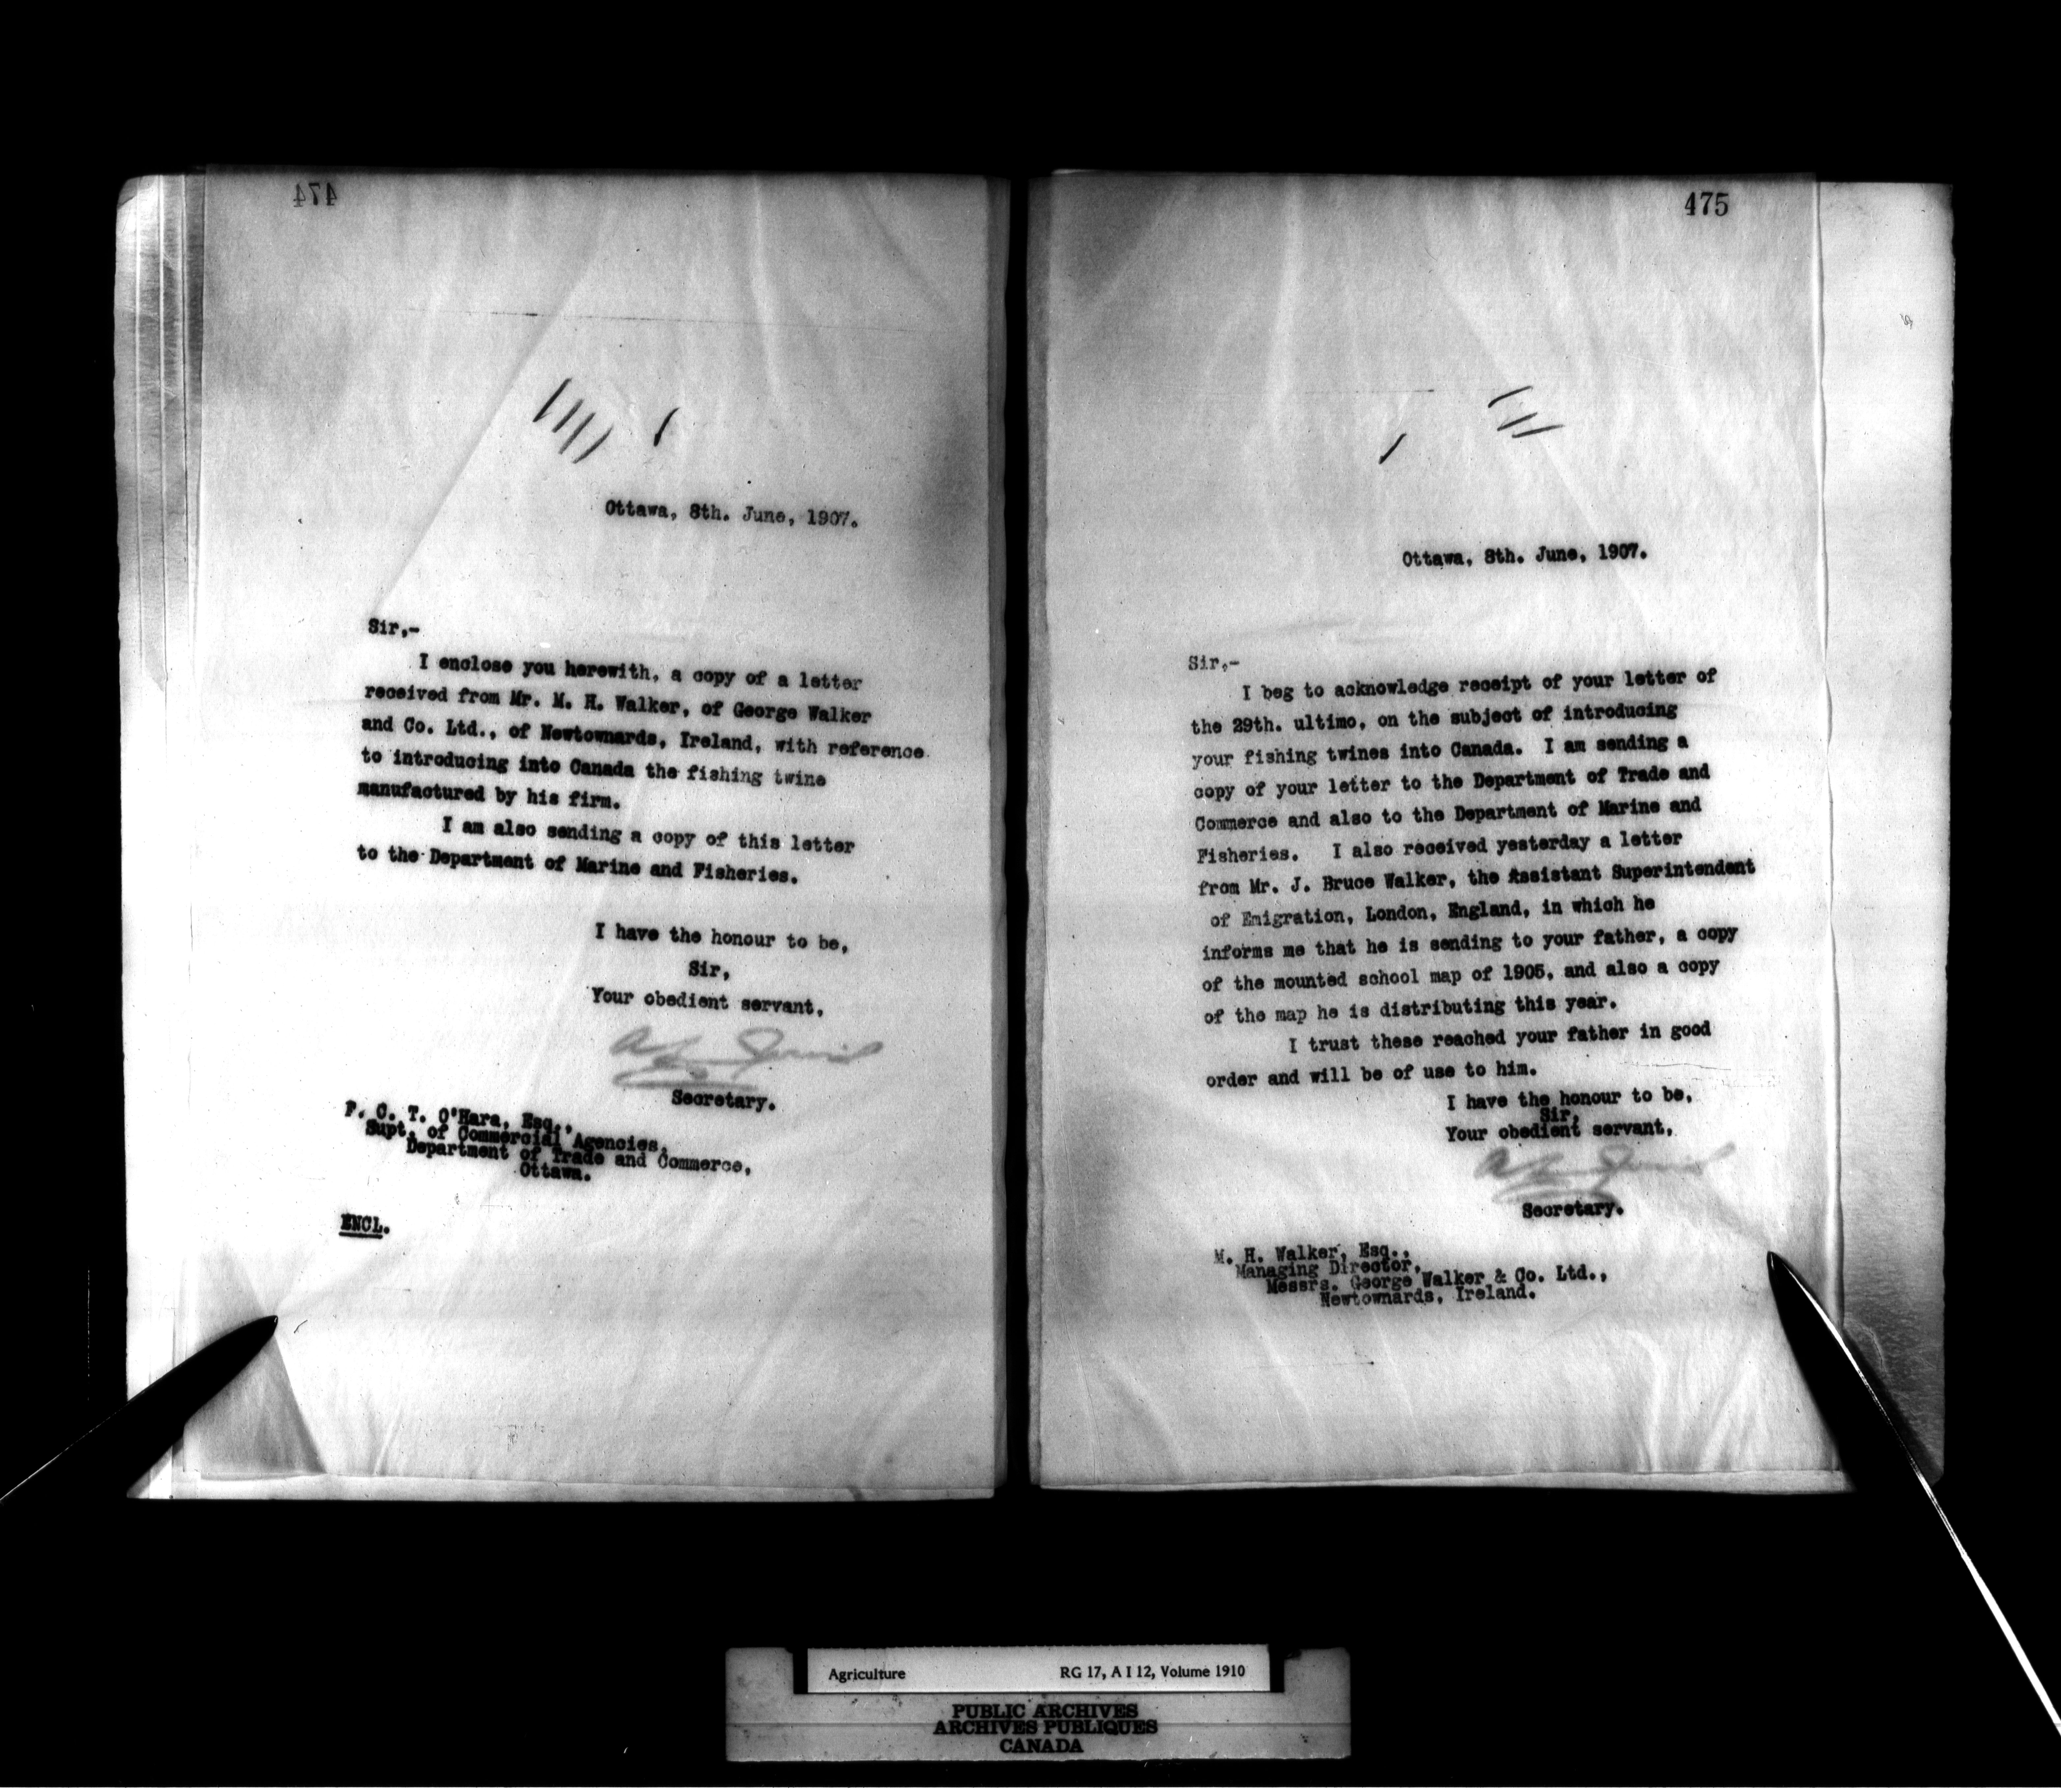 474
Ottawa, 8th. June, 1907.
Sir,-
I enclose you herewith, a copy of a letter
received from Mr. M. H. Walker, of George Walker
and Co. Ltd., of Newtownards, Ireland, with reference
to introducing into Canada the fishing twine
manufactured by his firm.
I am also sending a copy of this letter
to the Department of Marine and Fisheries.
I have the honour to be,
Sir,
Your obedient servant,
Secretary.
F. C. T. O'Hara, Esq.,
Supt. of Commercial Agencies,
Department of Trade and Commerce,
Ottawa.
ENCL.
475
Ottawa, 8th. June, 1907.
Sir,-
I beg to acknowledge receipt of your letter of
the 29th. ultimo, on the subject of introducing
your fishing twines into Canada. I am sending a
copy of your letter to the Department of Trade and
Commerce and also to the Department of Marine and
Fisheries. I also received yesterday a letter
from Mr. J. Bruce Walker, the Assistant Superintendent
of Emigration, London, England, in which he
informs me that he is sending to your father, a copy
of the mounted school map of 1905, and also a copy
of the map he is distributing this year.
I trust these reached your father in good
order and will be of use to him.
I have the honour to be,
Sir,
Your obedient servant,
Secretary.
M. H. Walker, Esq.,
Managing Director,
Messrs. George Walker & Co. Ltd.,
Newtownards, Ireland.
Agriculture RG 17, A I 12, Volume 1910
PUBLIC ARCHIVES
ARCHIVES PUBLIQUES
CANADA